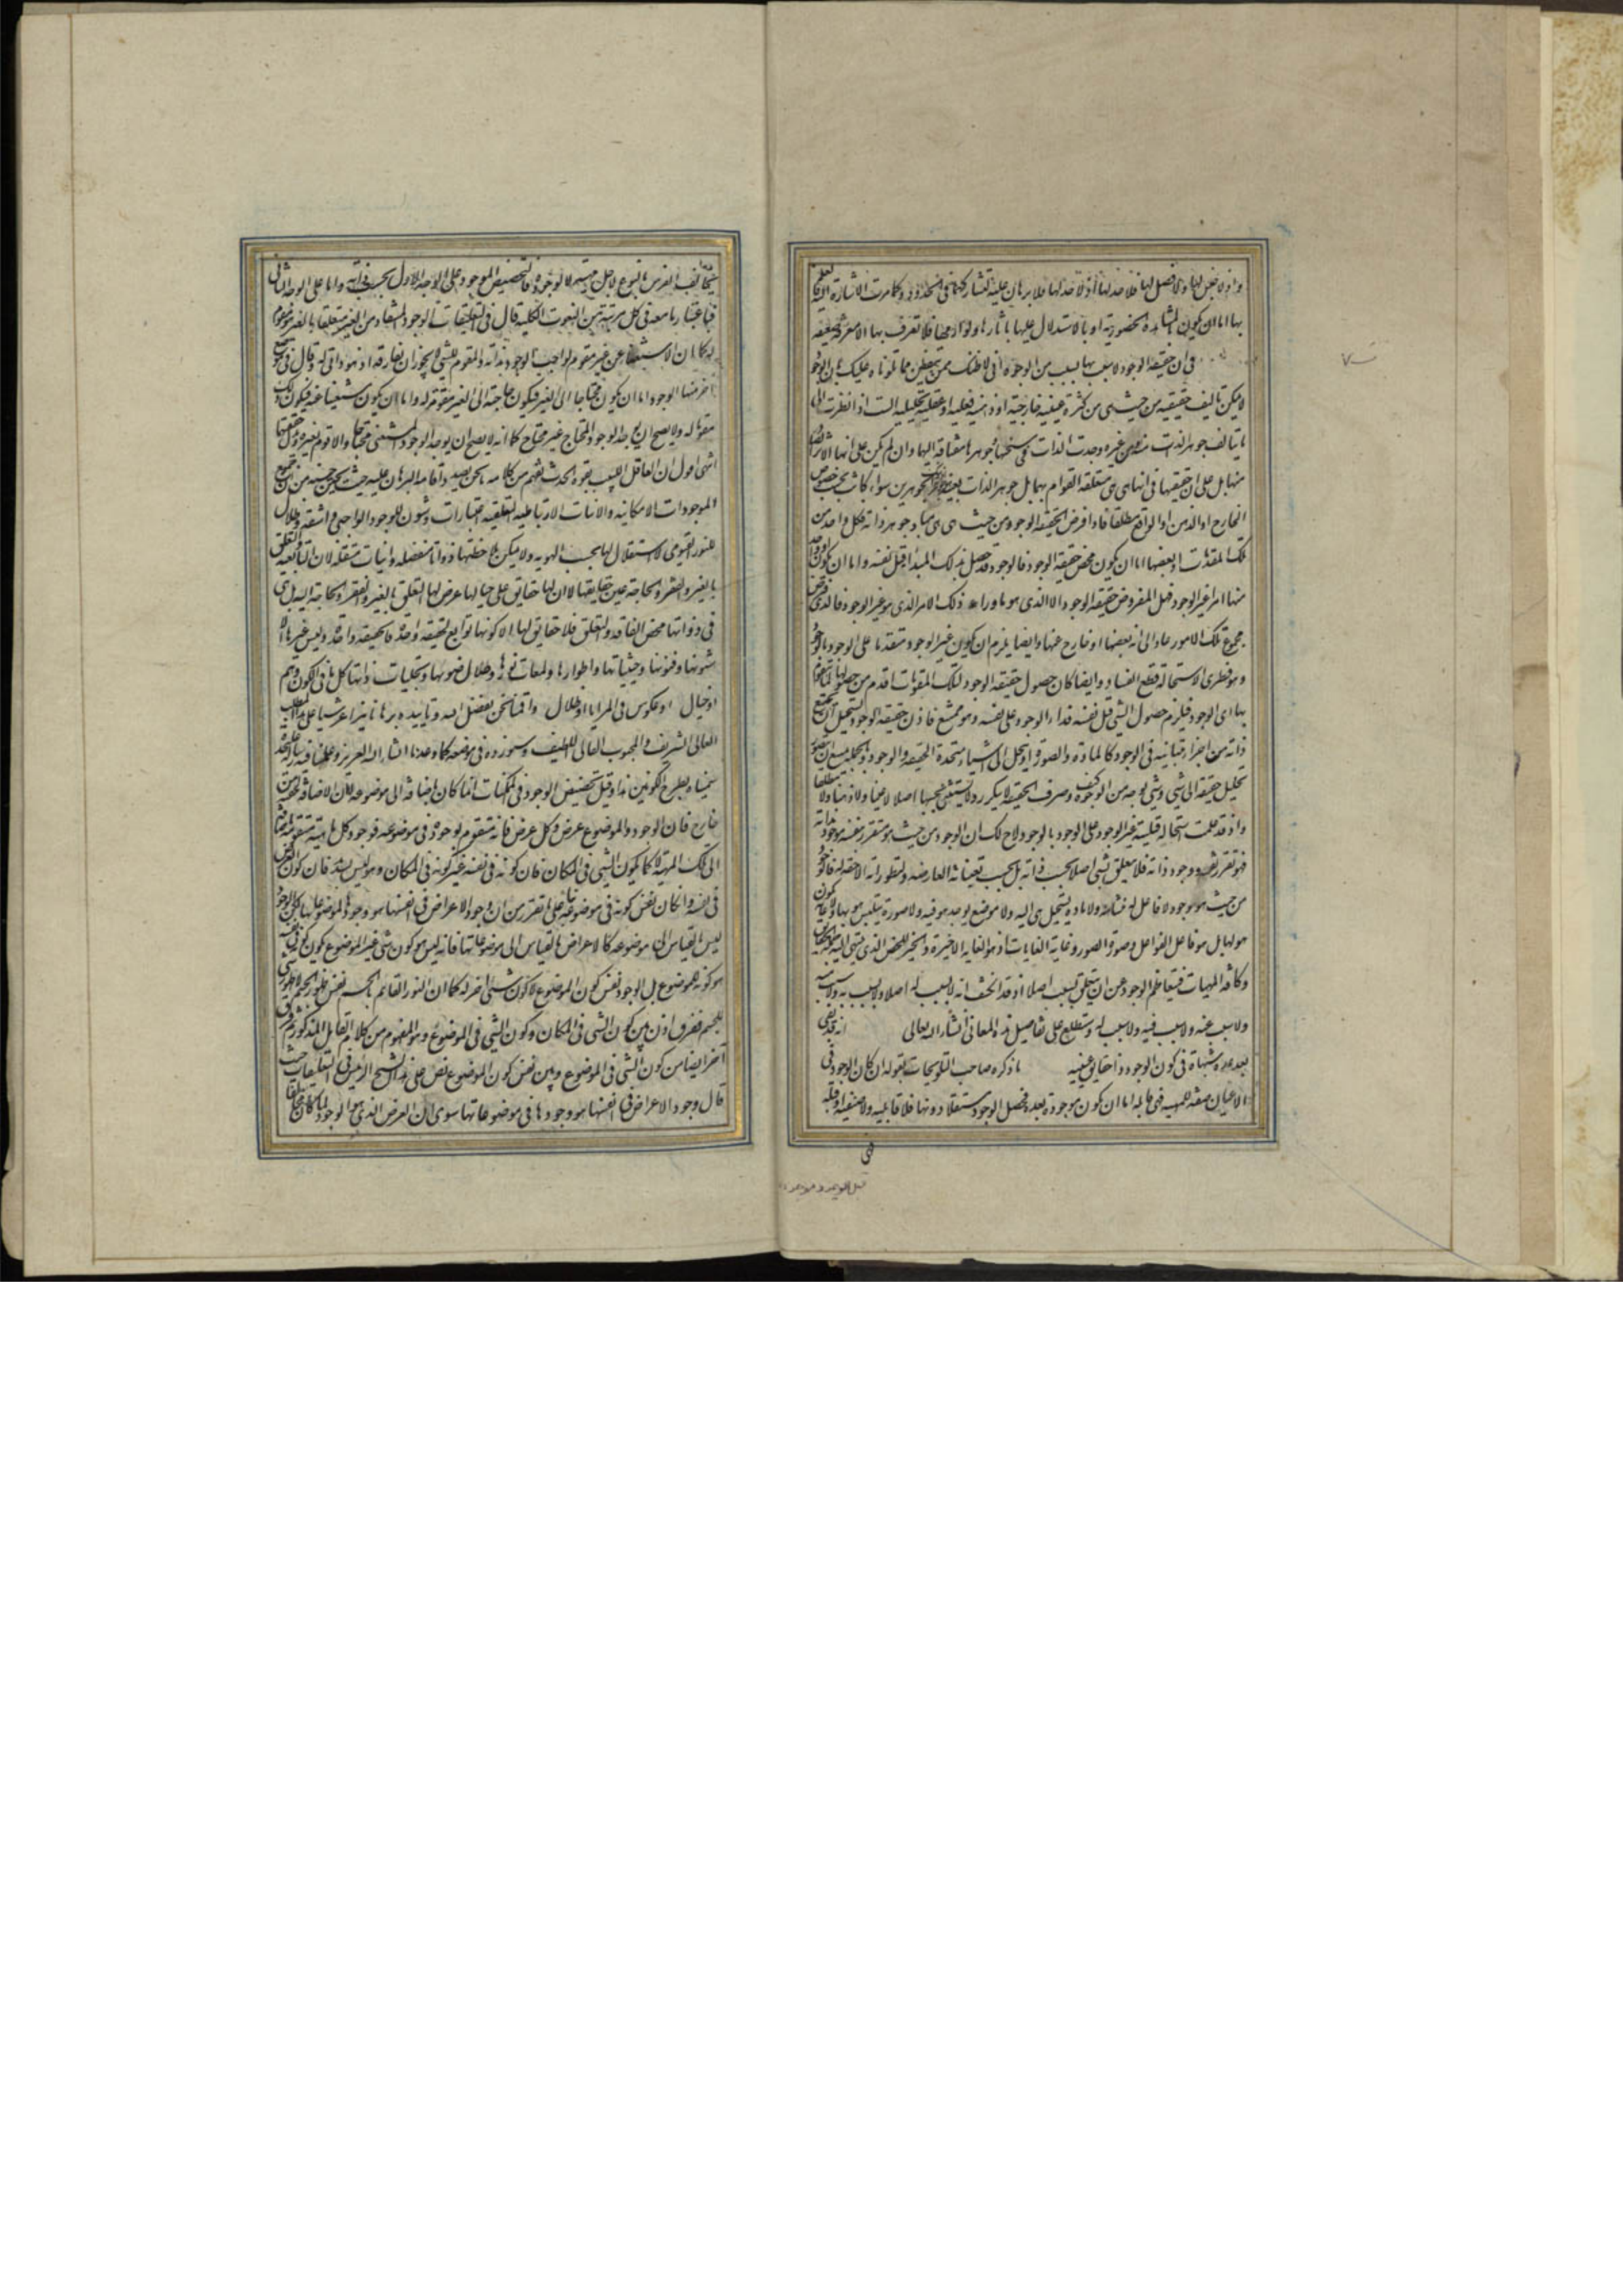 واذ لا جنس لها ولا فصل لها فلا حد لها واذ لا حد لها فلا برهان عليها لتشاركهما فى الحدود وكما مرت الاشارة اليه فالعلم
بها اما ان يكون بالمشاهدة الحضورية او بالاستدلال عليها باثارها ولوازمها فلا تعرف بها الا معرفة ضعيفة
فى ان حقيقة الوجود لا سبب لها بسبب من الوجوه انى لاظنك ممن يتفطن مما تلوناه عليك بان الوجود
لا يمكن تاليف حقيقته من حيث هى من كثرة عينية خارجية او ذهنية فعلية او عقلية تحليلية الست اذا نظرت الى
ما يتالف جوهر الذات منه ومن غيره وجدت الذات فى سنخها وجوهرها مفتاقة اليهما وان لم يكن على انها الاثر الصادر
منهما بل على ان حقيقتها فى انها هى هى متعلقة القوام بهما بل جوهر الذات بعينه جوهر ذينك الجوهرين سواء كانت بحسب خصوص
الخارج او الذهن او الواقع مطلقا فاذا فرض لحقيقة الوجود من حيث هى هى مباد جوهر ذاته فكل واحد من
تلك المقومات او بعضها اما ان يكون محض حقيقة الوجود فالوجود قد حصل بذلك المبدا قبل نفسه واما ان يكون او واحد
منها امرا غير الوجود فهل المفروض حقيقة الوجود الا الذى هو ما وراء ذلك الامر الذى هو غير الوجود فالذى فرض
مجموع تلك الامور عاد الى انه بعضها او خارج عنها وايضا يلزم ان يكون غير الوجود متقدما على الوجود بالوجود
وهو فطرى الاستحالة قطع الفساد وايضا كان حصول حقيقة الوجود لتلك المقومات اقدم من حصولها لما يتقوم
بها اى الوجود فيلزم حصول الشى قبل نفسه فدار الوجود على نفسه وهو ممتنع فاذن حقيقة الوجود يستحيل ان يجتمع
ذاته من اجزاء متباينة فى الوجود كالمادة والصورة او ينحل الى اشياء متحدة الحقيقة والوجود وبالجملة يمتنع ان يتصور
تحليل حقيقة الى شى وشى بوجه من الوجوه كيف وصرف الحقيقة لا يتكرر ولا يتثنى بحسبها اصلا لا عينا ولا ذهنا ولا مطلقا
واذ قد علمت استحالة قبلية غير الوجود على الوجود بالوجود لاح لك ان الوجود من حيث هو متقرر بنفسه موجود بذاته
فهو تقرر نفسه ووجود ذاته فلا يتعلق بشى اصلا بحسب ذاته بل بحسب تعيناته العارضة وتطوراته اللاحقة له فالوجود
من حيث هو وجود لا فاعل له ينشا منه ولا مادة يستحيل هى اليه ولا موضوع يوجد هو فيه ولا صورة يتلبس هو بها ولا غاية يكون
هو لها بل هو فاعل الفواعل وصورة الصور وغاية الغايات اذ هو الغاية الاخيرة والخير المحض الذى ينتهى اليه جملة الحقايق
وكافة المهيات فيتعاظم الوجود عن ان يتعلق بسبب اصلا اذ قد انكشف انه لا سبب له اصلا ولا سبب به ولا سبب منه
ولا سبب عنه ولا سبب فيه ولا سبب له وستطلع على تفاصيل هذه المعانى ان شاء الله تعالى انه قد بقى
بعد عدة شبهات فى كون الوجود ذا حقايق عينية ما ذكره صاحب التلويحات بقوله ان كان الوجود فى
الاعيان صفة للمهية فهى قابلة اما ان يكون موجودة بعده فحصل الوجود مستقلا دونها فلا قابلية ولا صفتية او قبله
فهى
يتخالف الفرس بالنوع لاجل مهيته لا لوجوده فالتخصيص الموجود على الوجه الاول بحسب ذاته واما على الوجه الثانى
فباعتبار ما معه فى كل مرتبة من النعوت الكلية قال فى التعليقات الوجود المستفاد من الغير كونه متعلقا بالغير هو مقوم
له كما ان الاستغناء عن غير مقوم لواجب الوجود بذاته والمقوم للشى لا يجوز ان يفارقه اذ هو ذاتى له وقال فى موضع
اخر منها الوجود اما ان يكون محتاجا الى الغير فيكون حاجته الى الغير مقومة له واما ان يكون مستغنيا عنه فيكون ذلك
مقوما له ولا يصح ان يوجد الوجود المحتاج غير محتاج كما انه لا يصح ان يوجد الوجود المستغنى محتاجا والا قوم بغيره وبدل حقيقتهما
انتهى اقول ان العاقل اللبيب بقوة الحدث يفهم من كلامه ما نحن بصدد اقامة البرهان عليه حيث يحين حينه من ان جميع
الموجودات الامكانية والانيات الارتباطية التعلقية اعتبارات وشئون للوجود الواجبى واشعة وظلال
للنور القيومى لا استقلال لها بحسب الهوية ولا يمكن ملاحظتها ذواتا منفصلة وانيات مستقلة لان التابعية والتعلق
بالغير والفقر والحاجة عين حقايقها لا ان لها حقايق على حيالها عرض لها التعلق بالغير والفقر والحاجة اليه بل هى
فى ذواتها محض الفاقة والتعلق فلا حقايق لها الا كونها توابع لحقيقة واحدة فالحقيقة واحدة وليس غيرها الا
شئونها وفنونها وحيثياتها واطوارها ولمعات نورها وظلال ضوئها وتجليات ذاتها كل ما فى الكون وهم
او خيال او عكوس فى المرايا او ظلال واقمنا نحن بفضل الله وتاييده برهانا نيرا عرشيا على هذا المطلب
العالى الشريف والمحجوب الغالى اللطيف وسنورده فى موضعه كما وعدناه ان شاء الله العزيز وعملنا فيه رسالة على حدة
سميناه بطرح الكونين هذا وقيل تخصيص الوجود فى الممكنات انما كان باضافته الى موضوعه لا ان الاضافة لحقته من
خارج فان الوجود ذا الموضوع عرض وكل عرض فانه متقوم بوجوده فى موضوعه فوجود كل ماهية متقوم باضافته
الى تلك المهية لا كما يكون الشى فى المكان فان كونه فى نفسه غير كونه فى المكان وهو ليس بسديد فان كون العرض
فى نفسه وان كان نفس كونه فى موضوعه بناء على ما تقرر من ان وجود الاعراض فى انفسها هو وجودها لموضوعاتها لكن الوجود
ليس بالقياس الى موضوعه كالاعراض بالقياس الى موضوعاتها فانه ليس هو كون شى غير الموضوع يكون كونه فى نفسه
هو كونه للموضوع بل الوجود نفس كون الموضوع لا كون شى اخر له كما ان النور القائم بالجسم نفس ظهور الجسم لا ظهور شى
للجسم ففرق اذن بين كون الشى فى المكان وكون الشى فى الموضوع وهو المفهوم من كلام القايل المذكور ثم فرق
آخر ايضا بين كون الشى فى الموضوع وبين نفس كون الموضوع نص على هذا الشيخ الرئيس فى التعليقات حيث
قال وجود الاعراض فى انفسها هو وجودها فى موضوعاتها سوى ان العرض الذى هو الوجود لما كان مخالفا